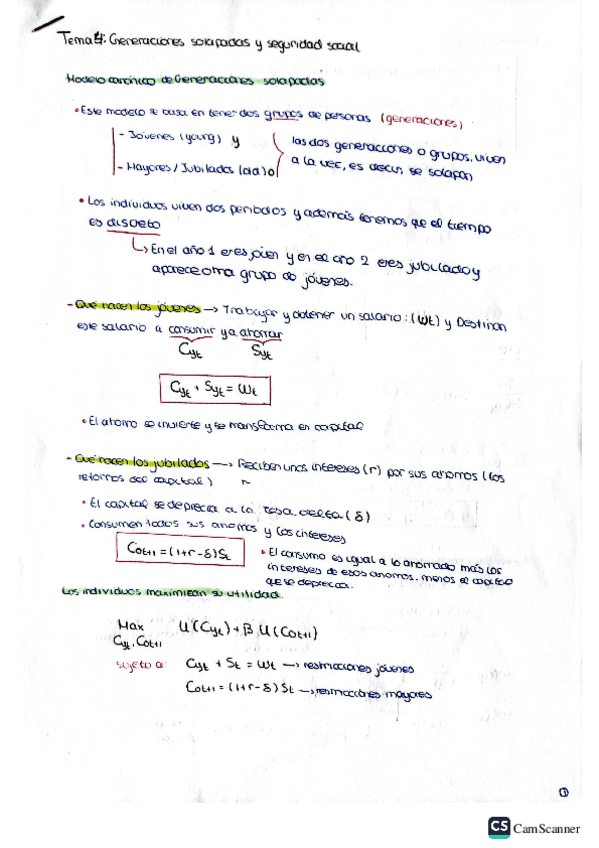 Tema 4: Generaciones solapadas y seguridad social
Modelo canónico de Generaciones solapadas
• Este modelo se basa en tener dos grupos de personas (generaciones)
- Jóvenes (young) y
- Mayores / Jubilados (old) o
las dos generaciones o grupos, viven
a la vez, es decir, se solapan
• Los individuos viven dos periodos y además tenemos que el tiempo
es discreto
↳ En el año 1 eres joven y en el año 2 eres jubilado y
aparece otra grupo de jóvenes.
- Qué hacen los jóvenes → Trabajar y obtener un salario: (Wt) y Destinan
este salario a consumir y a ahorrar
Cyt Syt
Cyt + Syt = Wt
• El ahorro se invierte y se transforma en capital
- Qué hacen los jubilados → Reciben unos intereses (r) por sus ahorros (los
retornos del capital) r
• El capital se deprecia a la tasa delta (δ)
• Consumen todos sus ahorros y los intereses
Cot+1 = (1+r-δ)St
• El consumo es igual a lo ahorrado más los
intereses de esos ahorros, menos el capital
que se deprecia.
Los individuos maximizan su utilidad.
Max U(Cyt) + β U(Cot+1)
Cyt, Cot+1
sujeto a: Cyt + St = Wt → restricciones jóvenes
Cot+1 = (1+r-δ)St → restricciones mayores
1
CS CamScanner